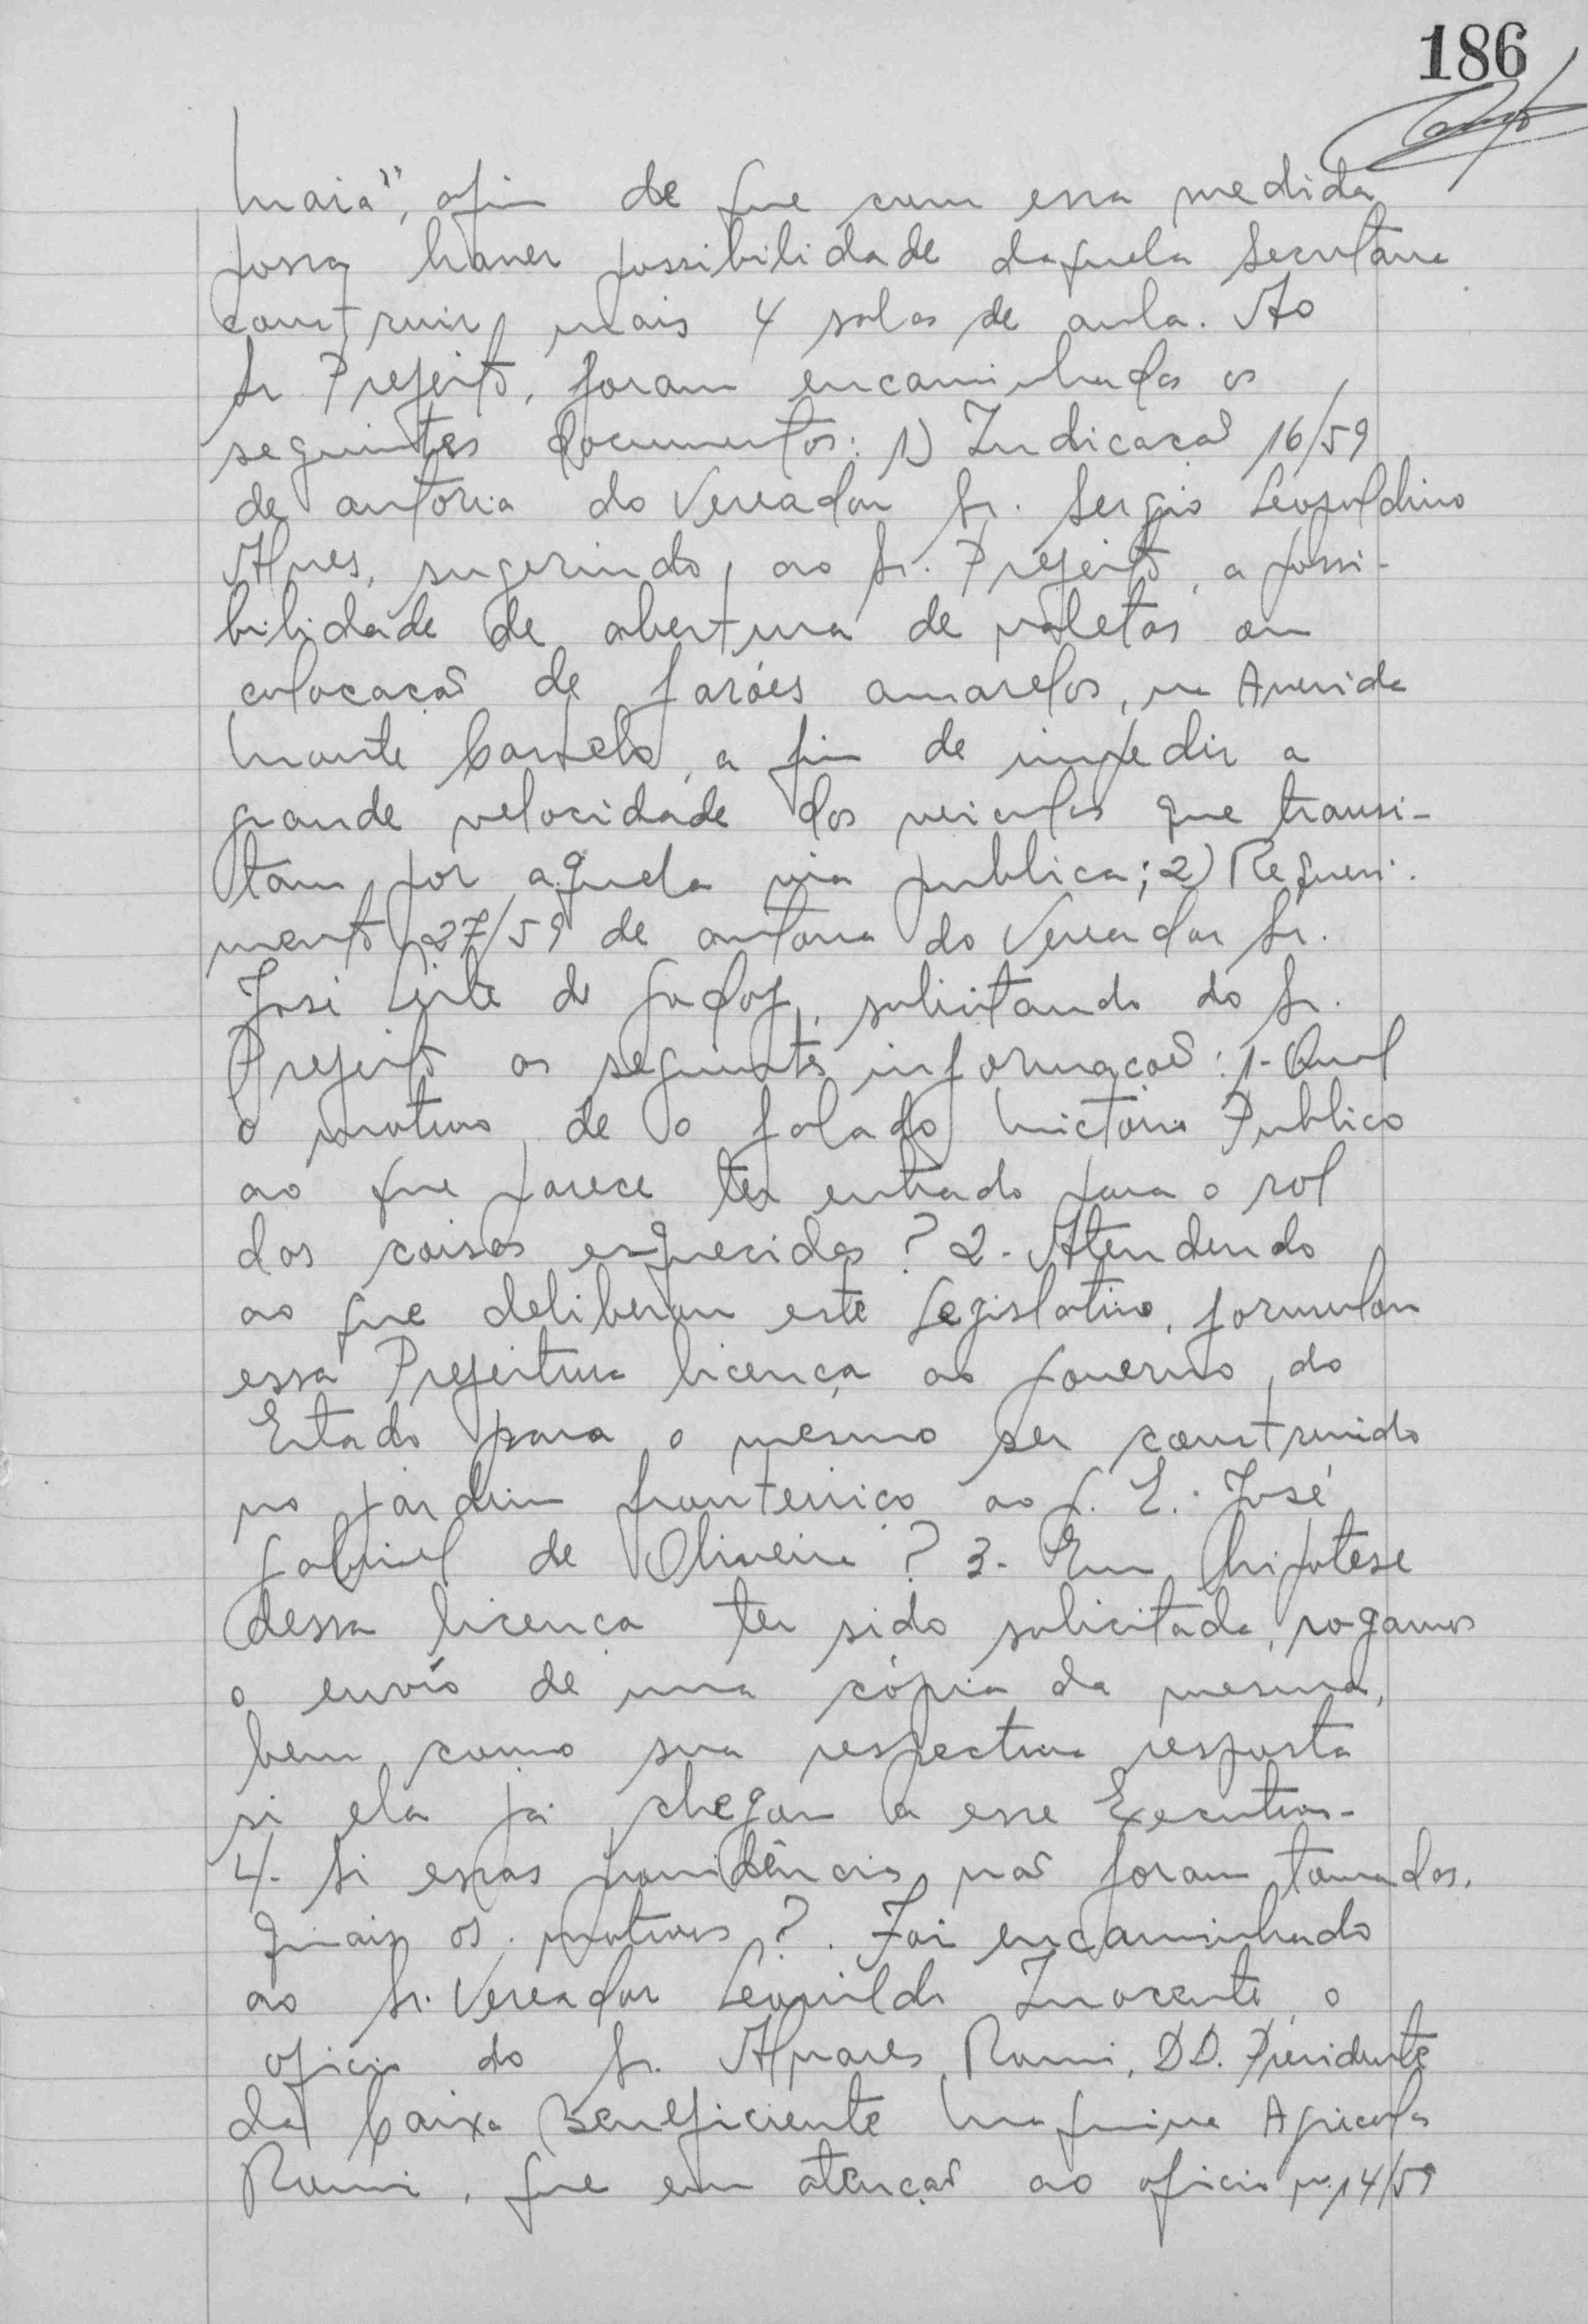 186
Maia", afim de que com essa medida
possa haver possibilidade daquela Secretaria
construir mais 4 salas de aula. Ao
Sr. Prefeito, foram encaminhados os
seguintes documentos: 1) Indicação 16/59
de autoria do Vereador Sr. Sergio Leopoldino
Alves, sugerindo, ao Sr. Prefeito, a possi-
bilidade de abertura de valetas ou
colocação de faróes amarelos, na Avenida
Monte Castelo, a fim de impedir a
grande velocidade dos veiculos que transi-
tam por aquela via publica; 2) Requeri-
mento 27/59 de autoria do Vereador Sr.
José Leite de Godoy, solicitando do Sr.
Prefeito as seguintes informações: 1- Qual
o motivo de o falado Mictorio Publico
ao que parece ter entrado para o rol
das coisas esquecidas? 2- Atendendo
ao que deliberou este Legislativo, formulou
essa Prefeitura licença ao Governo do
Estado para o mesmo ser construido
no jardim fronteiriço ao G. E. José
Gabriel de Oliveira? 3- Em hipotese
dessa licença ter sido solicitada, rogamos
o envío de uma cópia da mesma,
bem como sua respectiva resposta
si ela já chegou a esse Executivo-
4- Si essas providências não foram tomadas,
quais os motivos?. Foi encaminhado
ao Sr. Vereador Leovildo Inocente, o
oficio do Sr. Alvares Romi, DD. Presidente
da Caixa Beneficiente Maquina Agricola
Romi, que em atenção ao oficio nº 14/59